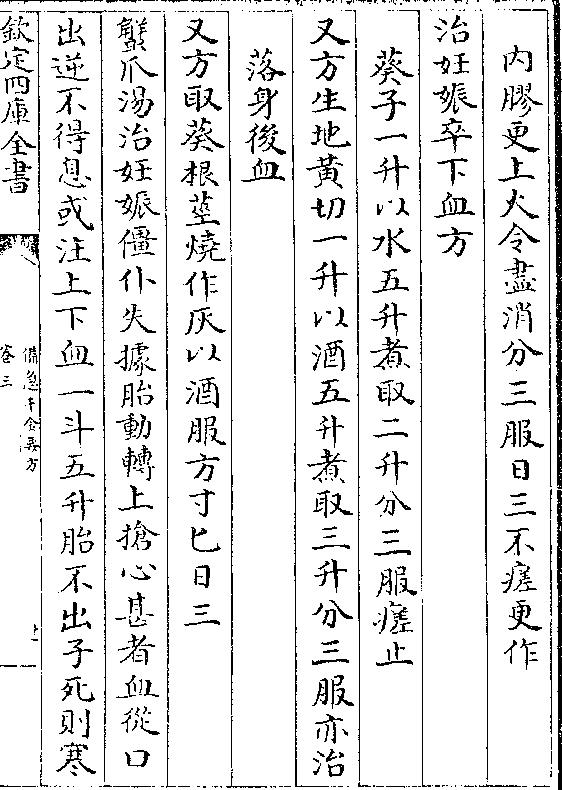 內膠更上火令盡消分三服日三不瘥更作
治妊娠卒下血方
葵子一升以水五升煮取二升分三服瘥止
又方生地黃切一升以酒五升煮取三升分三服亦治
落身後血
又方取葵根莖燒作灰以酒服方寸匕日三
蟹爪湯治妊娠僵仆失據胎動轉上搶心甚者血從口
出逆不得息或注上下血一斗五升胎不出子死則寒
欽定四庫全書
備急千金要方
卷三